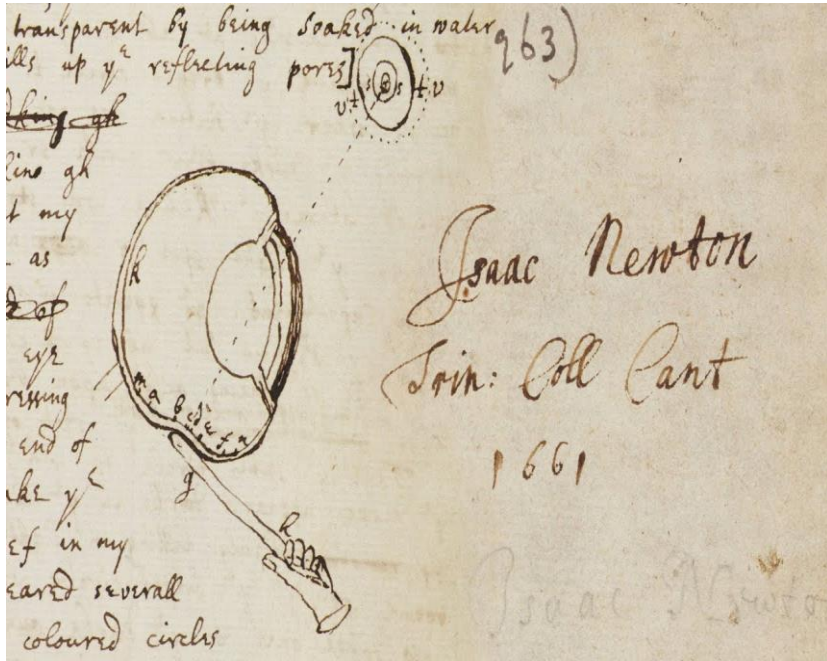 transparent by being soaked in water
ills up yᵉ reflecting pores]
king gh
line gh
t my
as
d of
eye
ressing
end of
ake yᵉ
ef in my
eared severall
coloured circles
963)
s s t v
v t
h
m a b c d e f n
g
h
Isaac Newton
Trin: Coll Cant
1661
Isaac Newto